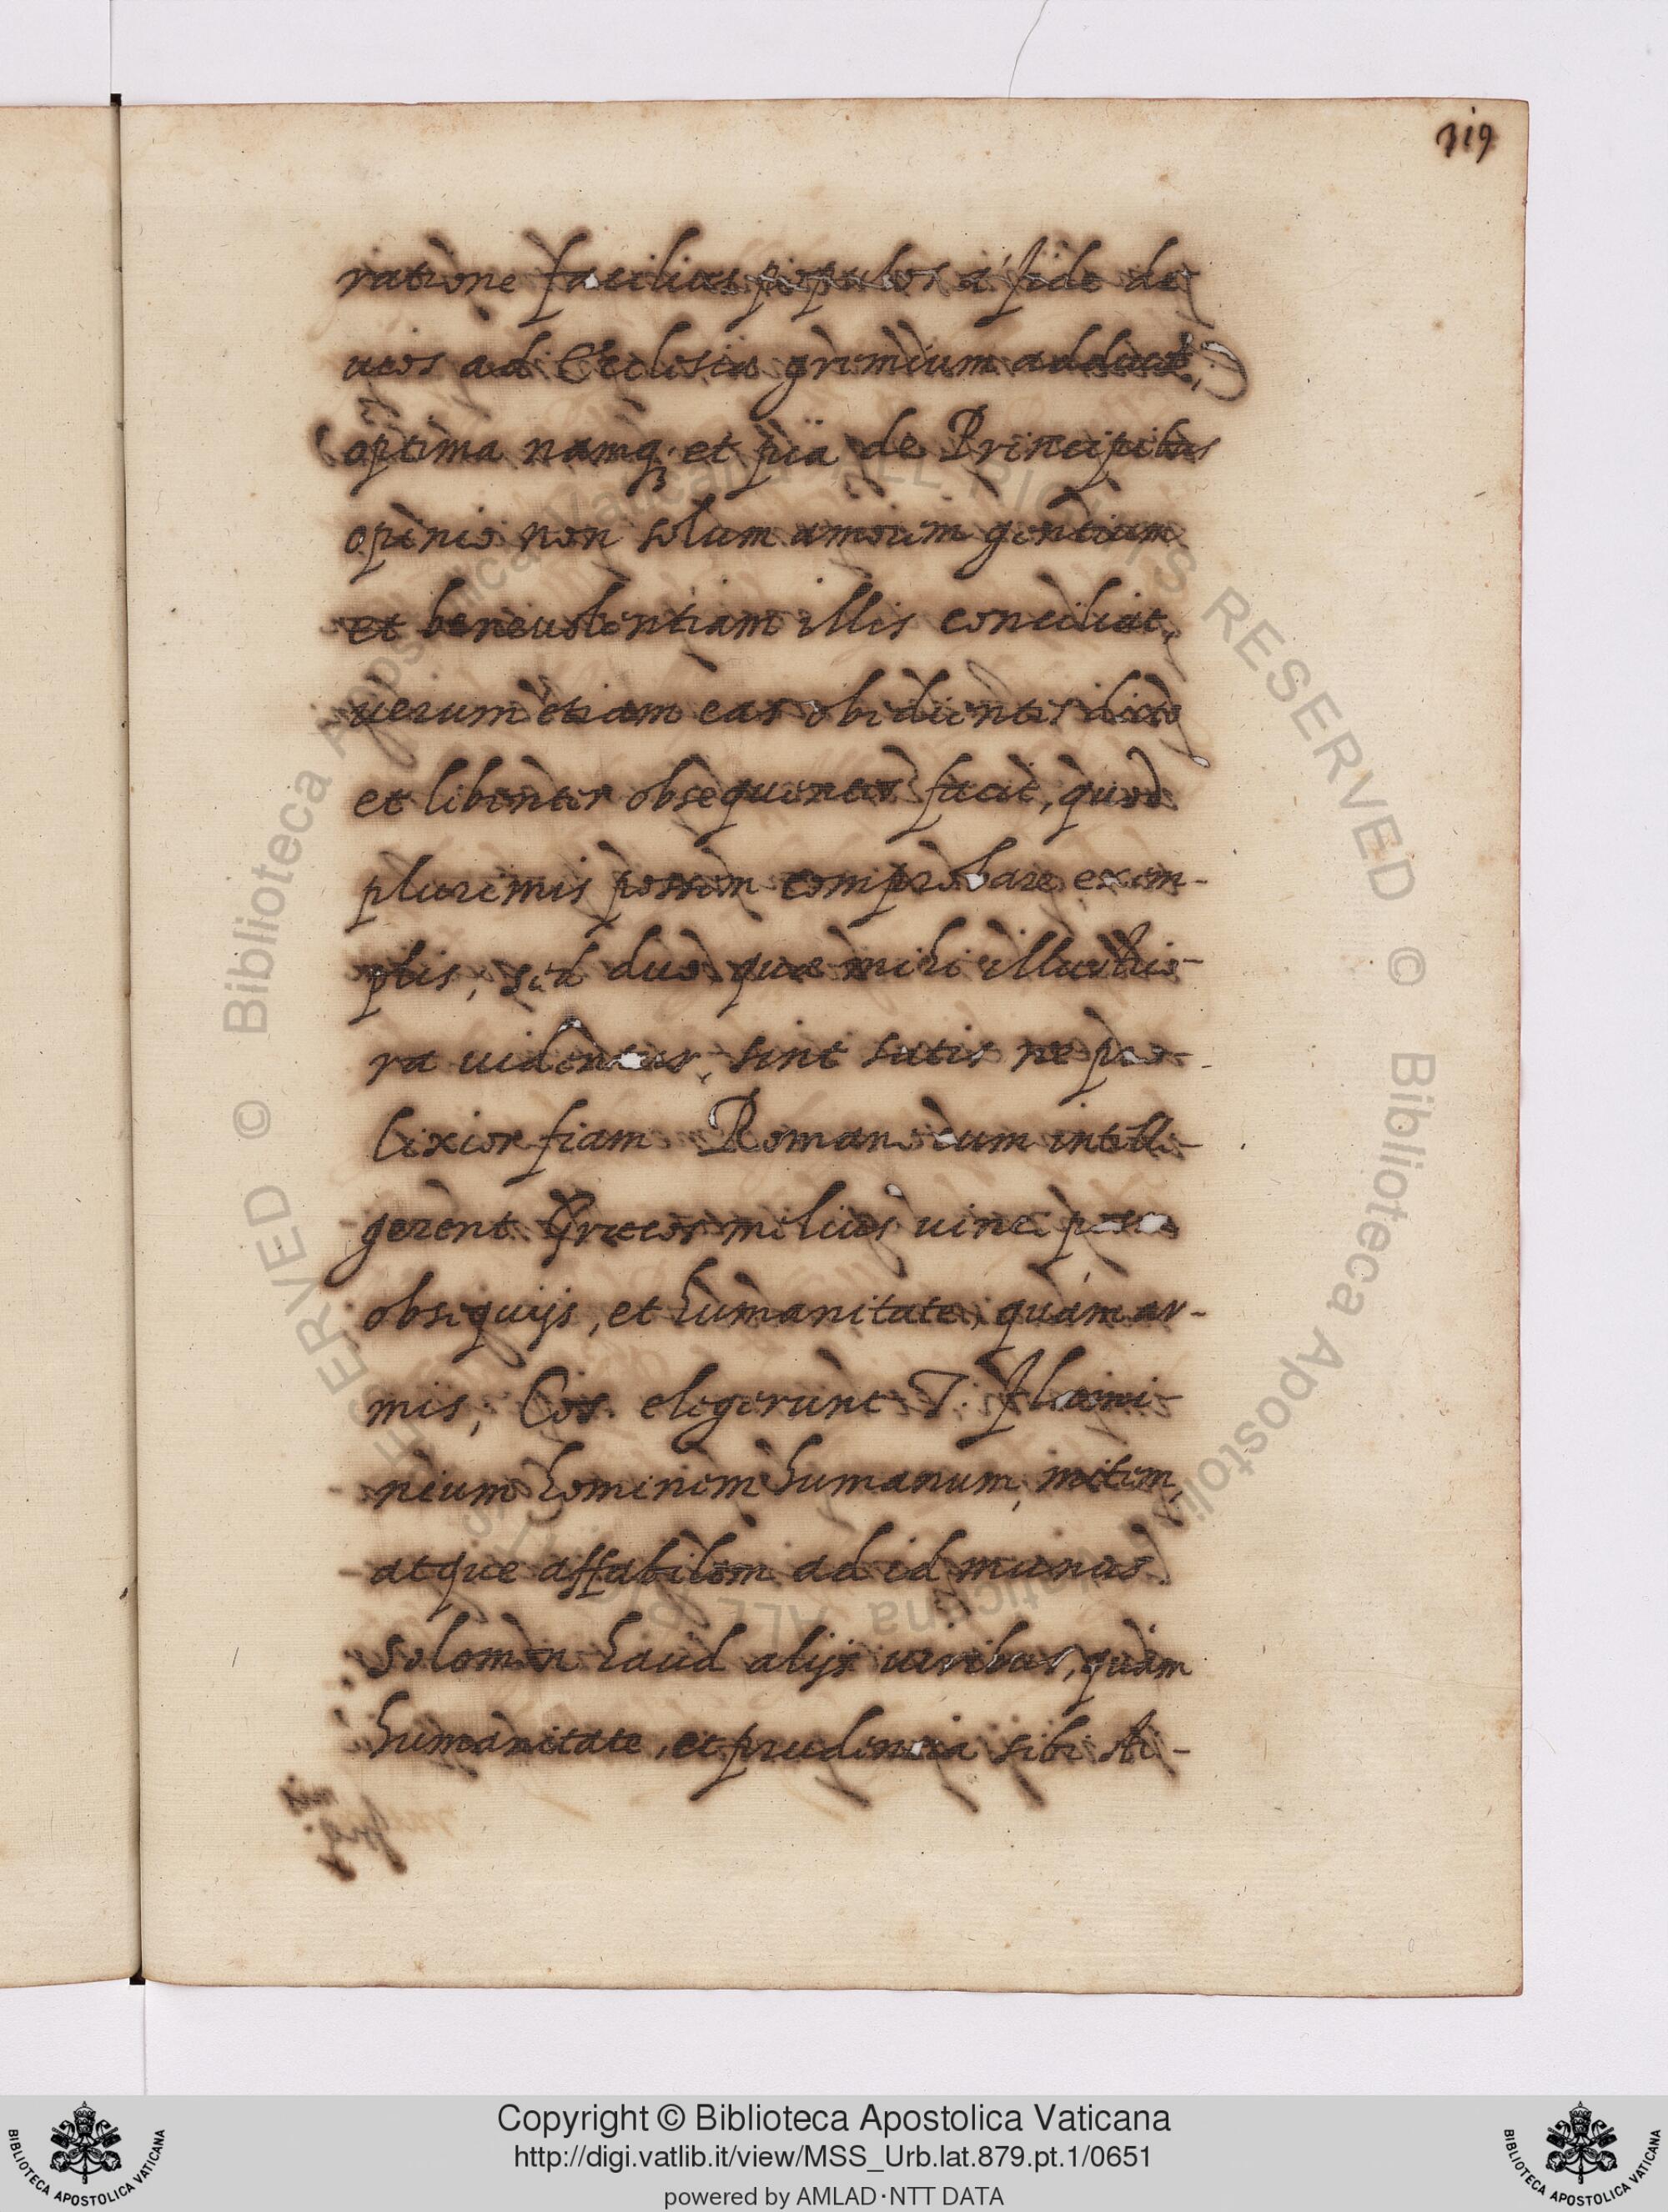 319
ratione facilius populos a' fide de
uios ad Ecclesiæ gremium adducet,
optima namq; et pia de Principibus
opinio non solum amorem gentium
et beneuolentiam illis conciliat,
uerum etiam eas obedientes
et libenter obsequentes facit, quod
plurimis possem comprobare exem-
plis, sed duo quæ mihi illustrio-
ra uidentur, sint satis ne pro-
lixior fiam Romani cum intelli-
gerent Græcos melius uinci posse
obsequijs, et humanitate, quàm ar-
mis, Cos. elegerunt T. Flami-
nium hominem humanum, mitem,
atque affabilem ad id munus.
Solomon haud alijs uiribus, quàm
humanitate, et prudentia sibi
Copyright © Biblioteca Apostolica Vaticana
http://digi.vatlib.it/view/MSS_Urb.lat.879.pt.1/0651
powered by AMLAD·NTT DATA
BIBLIOTECA APOSTOLICA VATICANA
BIBLIOTECA APOSTOLICA VATICANA
© Biblioteca Apostolica Vaticana ALL RIGHTS RESERVED © Biblioteca Apostolica Vaticana ALL RIGHTS RESERVED